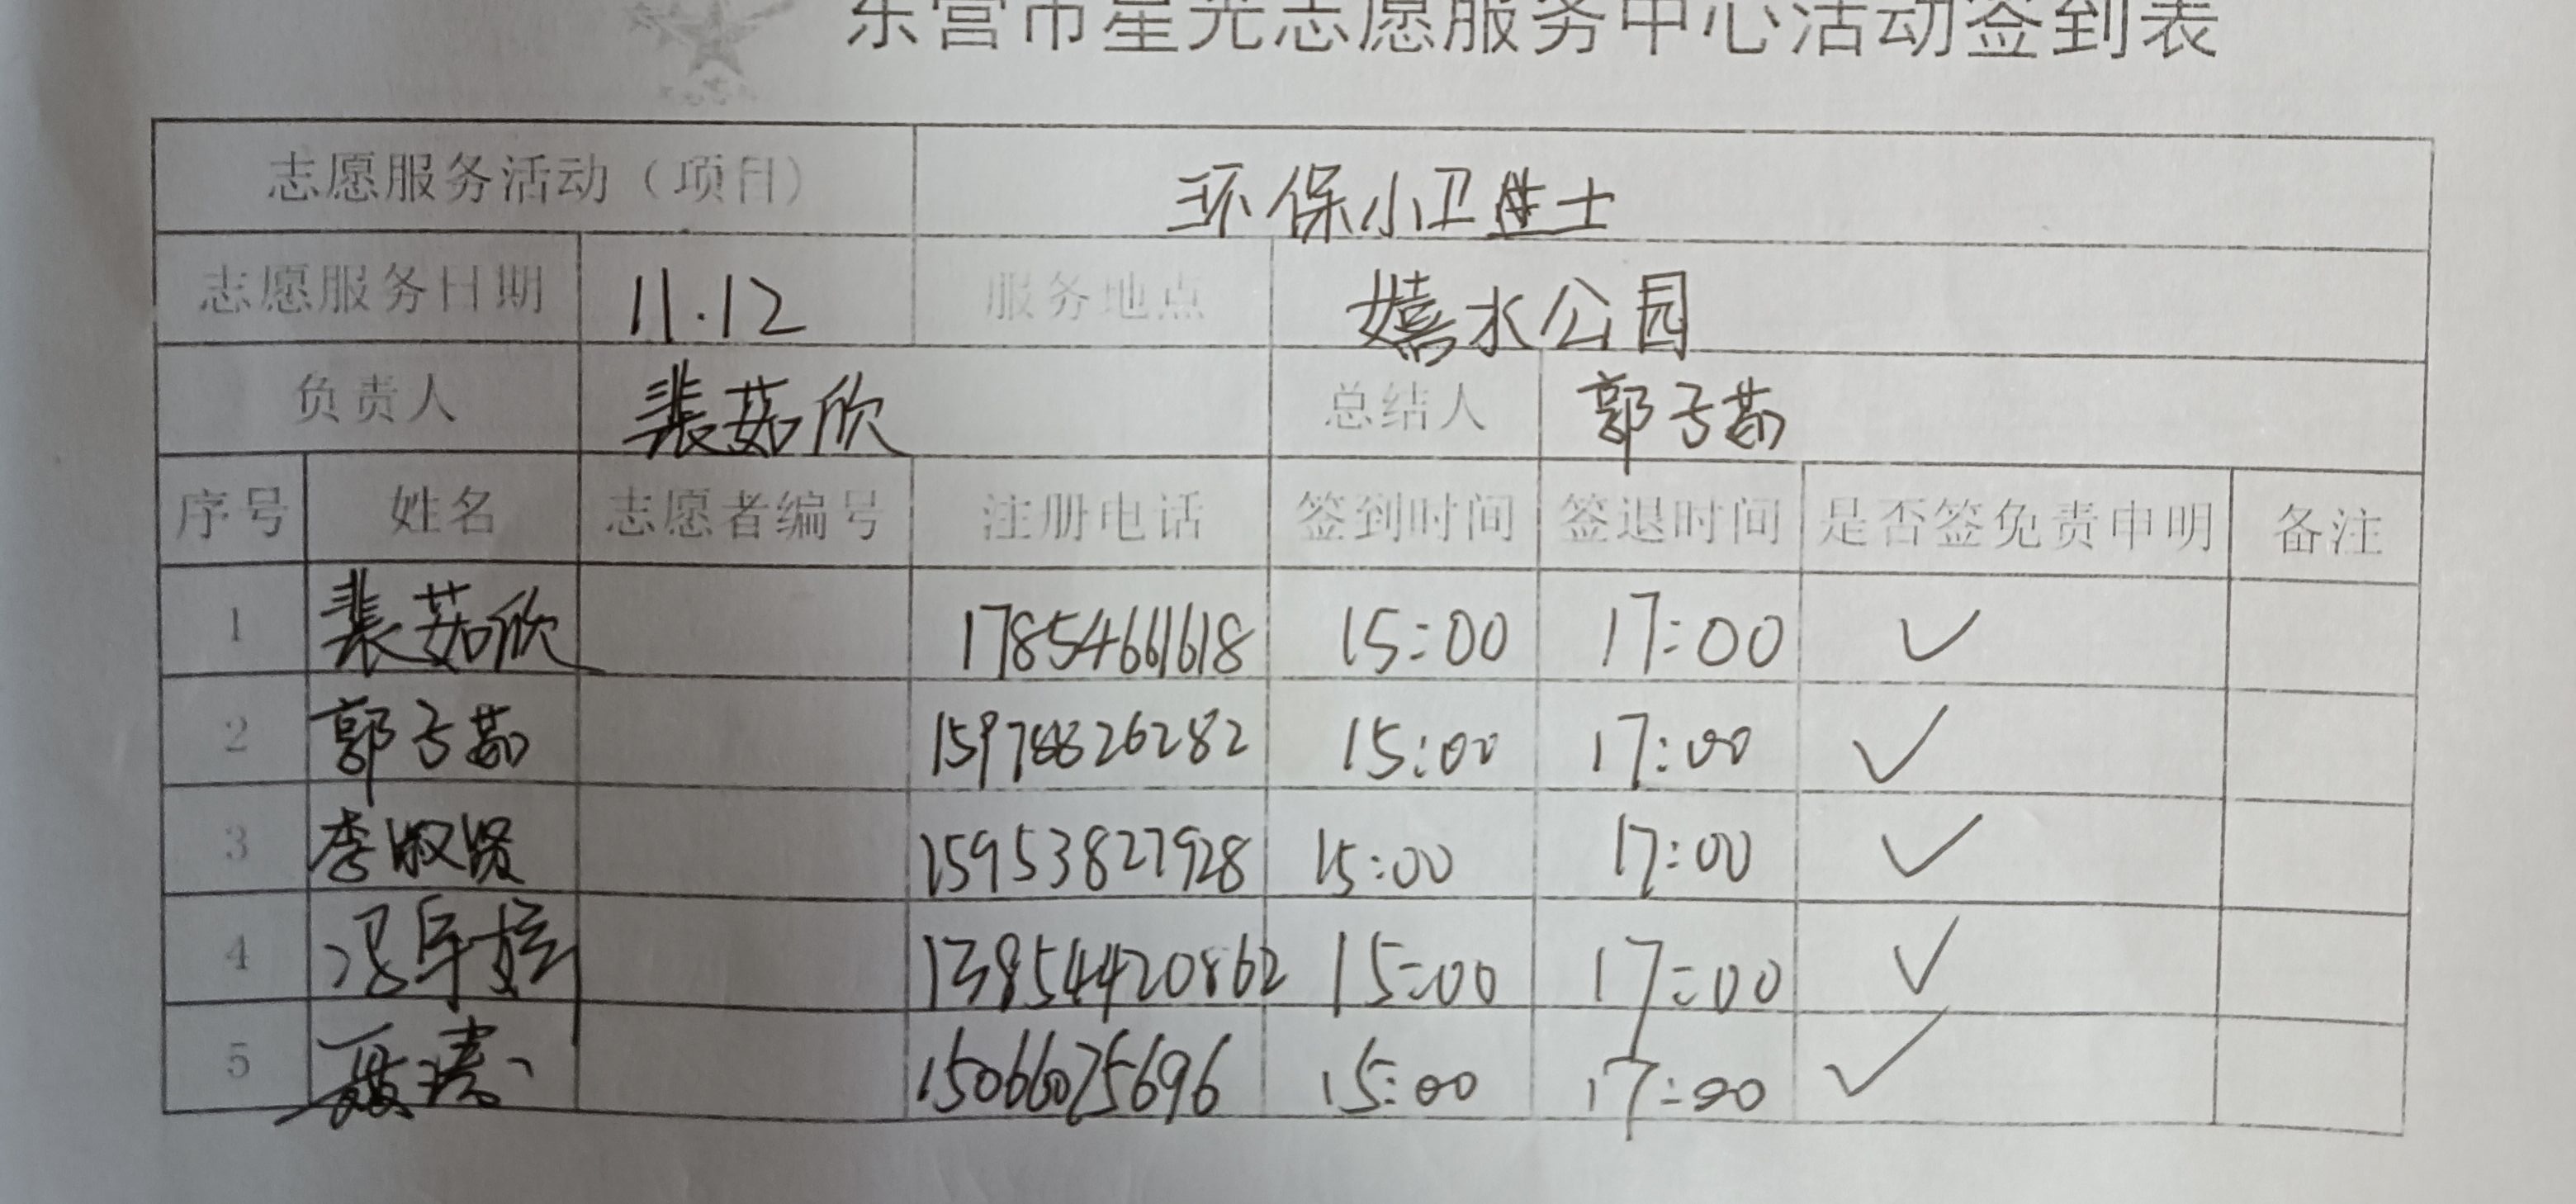 东营市星光志愿服务中心活动签到表
志愿服务活动（项目） 环保小卫士
志愿服务日期 11.12 服务地点 嬉水公园
负责人 裴茹欣 总结人 郭子茹
序号 姓名 志愿者编号 注册电话 签到时间 签退时间 是否签免责申明 备注
1 裴茹欣 17854661618 15:00 17:00 ✓
2 郭子茹 15978826282 15:00 17:00 ✓
3 李淑贤 15953827928 15:00 17:00 ✓
4 13854420862 15:00 17:00 ✓
5 15066025696 15:00 17:00 ✓